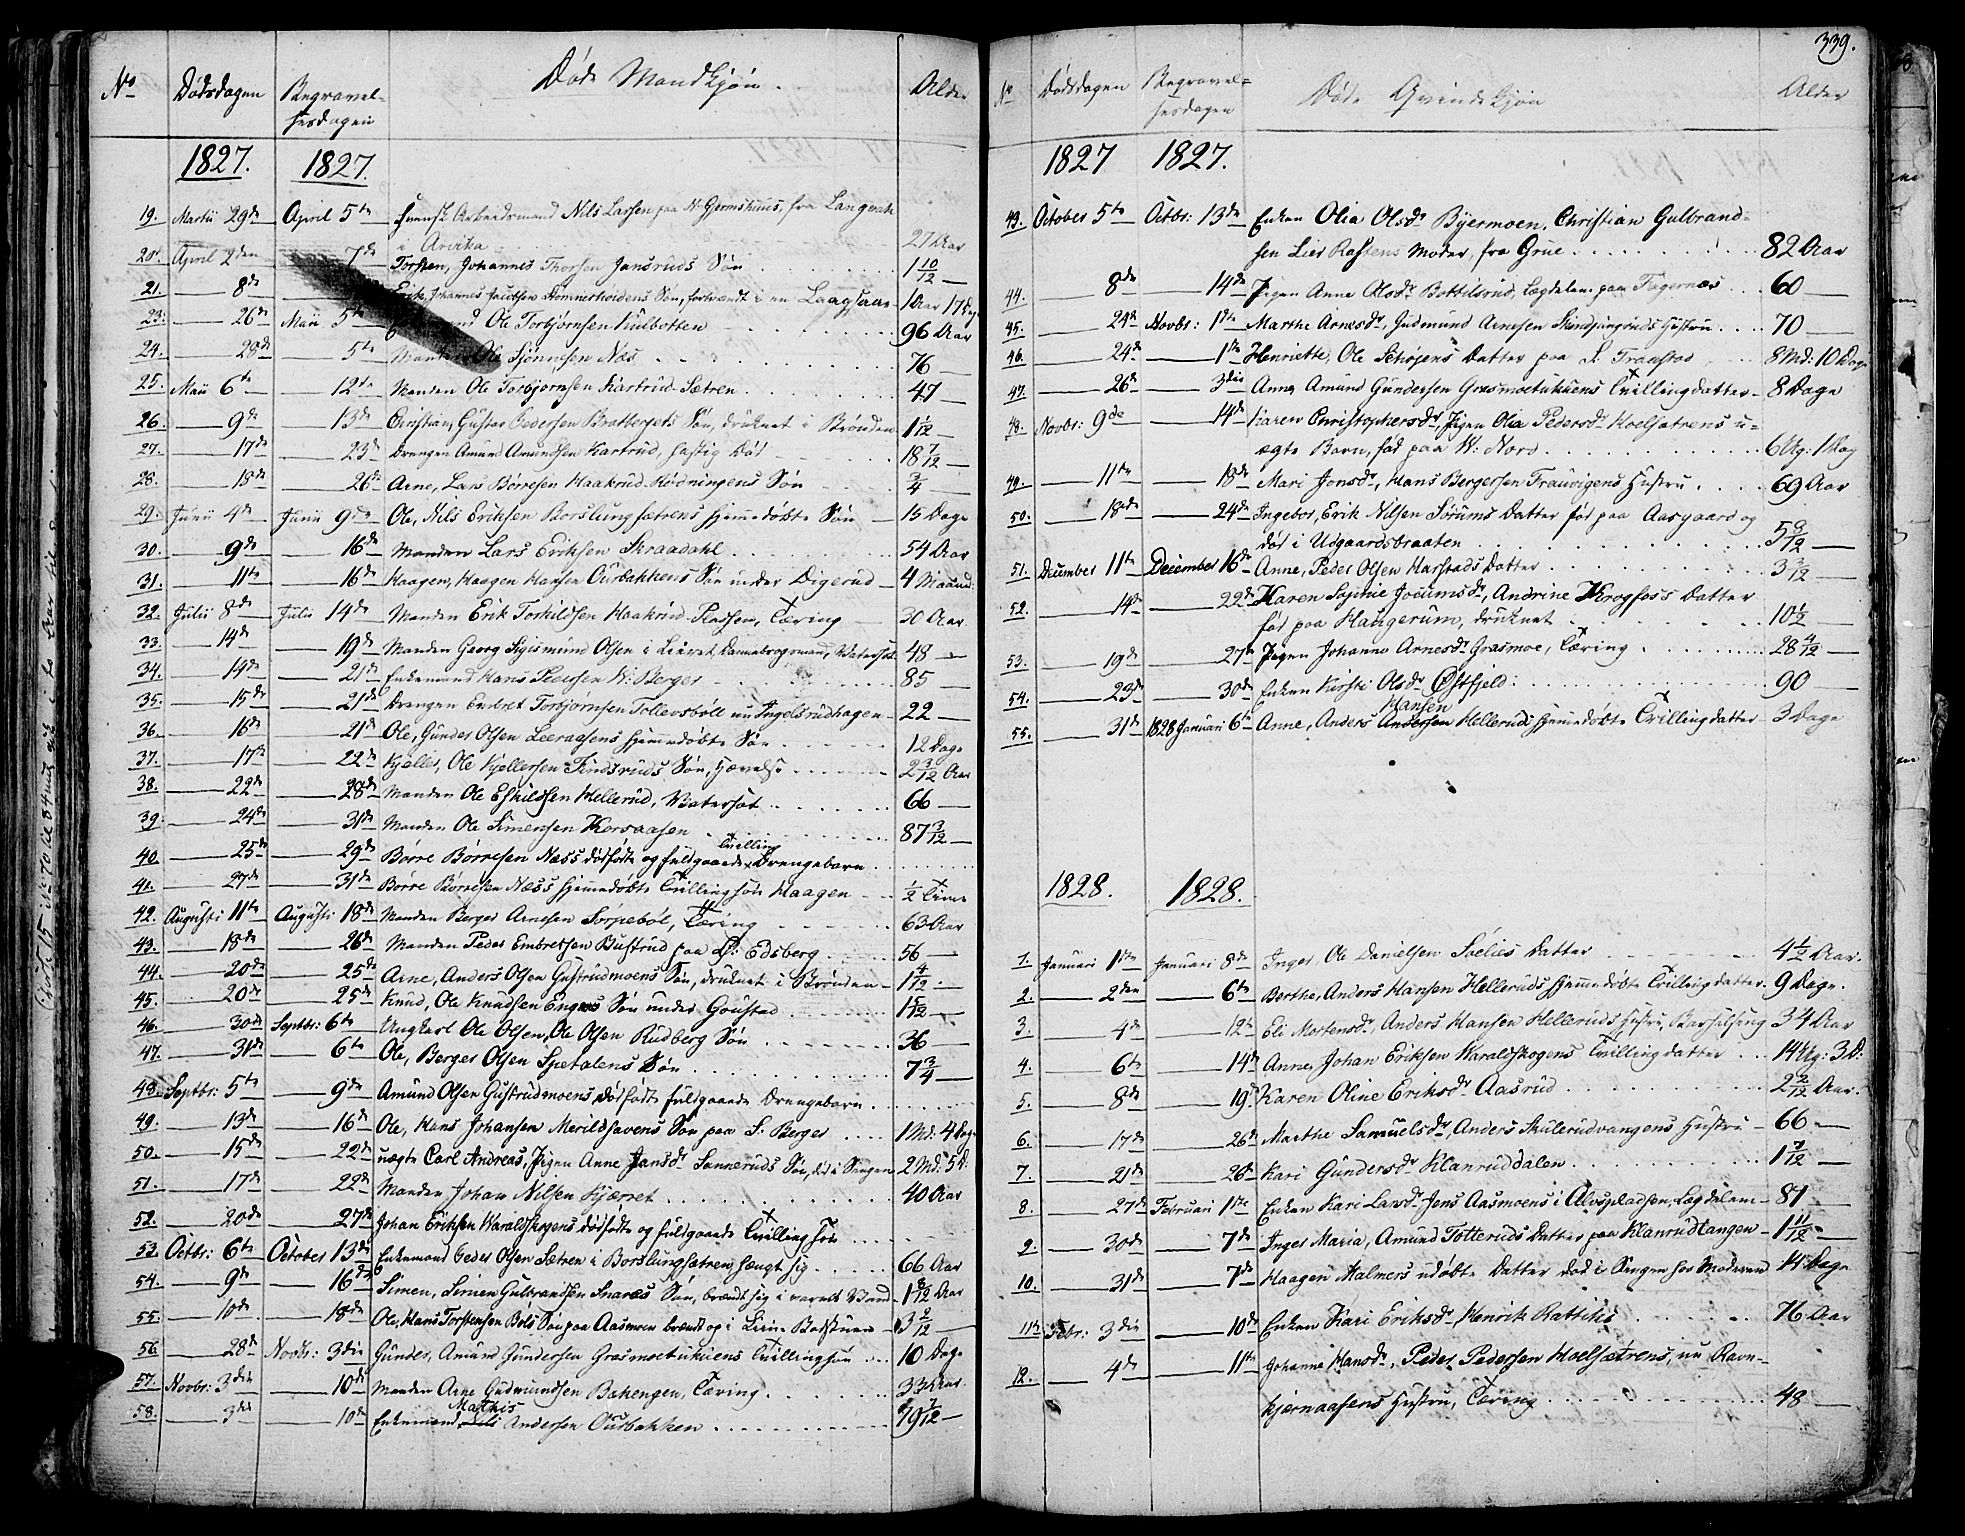 No Dødsdagen Begravel-
sesdagen Døde Mandkjøn. Alder
1827. 1827.
19. Martii 29de April 5te Svensk Arbeidsmand Nils Larsen paa N. Gjermshuus, fra Langvak
i Arvika 27 Aar
20. April 2den 7de Torsten, Johannes Thorsen Jansruds Søn 1 10/12
21. 8de Erik, Johannes Jacobsen Domnerheidens Søn, forbrændt i en Laagsaas 1 Aar 17 Dg
23. 26de Maii 5te Ole Torbjørnsen Kulbotten 96 Aar
24. 28de 5te Manden Ole Sjønnesen Næs 76
25. Maii 6te 12te Manden Ole Torbjørnsen Kartrud-Sætren 47
26. 9de 13de Christian, Gustav Pedersen Bratbergets Søn, druknet i Brønden 1 1/12
27. 17de 23de Drengen Amund Amundsen Kartrud, hastig Død 18 7/12
28. 18de 26de Arne, Lars Børresen Haakrud-Rødningens Søn 3/4
29. Junii 4de Junii 9de Ole, Nils Eriksen Borslungsætrens hjemmedøbte Søn 15 Dage
30. 9de 16de Manden Lars Eriksen Skraadahl 54 Aar
31. 11te 16de Haagen, Haagen Hansen Ourbekkens Søn under Digerud 4 Maaned
32. Julii 8de Julii 14de Manden Erik Torkildsen Haakrud-Pladsen, Tæring 30 Aar
33. 14de 19de Manden Georg Sigismund Olsen i Leiret Dannebrogsmand, Vatersot 48
34. 14de 21de Enkemand Hans Pedersen N. Berger 85
35. 15de 21de Drengen Embret Torbjørnsen Tollevsbøll nu Ingelsrudhagen 22
36. 16de 21de Ole, Gunder Olsen Leeraasens hjemmedøbte Søn 12 Dage
37. 17de 22de Kjeller, Ole Kjellersen Findsruds Søn, Hævelse 2 3/12 Aar
38. 22de 28de Manden Ole Eskildsen Hellerud, Vatersot 66
39. 24de 31de Manden Ole Simensen Korsaasen 87 3/12
40. 25de 29de Børre Børresen Næss dødfødte og fuldgaaede Tvilling Drengebarn
41. 27de 31de Børre Børresen Næss hjemmedøbte Tvillingsøn Haagen 1/2 Time
42. Augusti 11te Augusti 18de Manden Berger Arnesen Sorpebøl, Tæring 63 Aar
43. 18de 26de Manden Peder Embretsen Bustrud paa S. Edsberg 56
44. 20de 25de Arne, Anders Olsen Gustrudmoens Søn, druknet i Brønden 1 4/12
45. 20de 25de Knud, Ole Knudsen Enges Søn under Goustad 1 5/12
46. 30de Septbr: 6te Ungkarl Ole Olsen, Ole Olsen Rudberg Søn 36
47. 31de 6te Ole, Berger Olsen Spetalens Søn 7 3/4
48. Septbr: 5te 9de Amund Olsen Gustrudmoens dødfødte fuldgaaede Drengebarn
49. 13de 16de Ole, Hans Johansen Merildhavens Søn paa S. Berger 1 Md: 4 Dage
50. 15de 22de uægte Carl Andreas, Pigen Anne Jansdr Sonneruds Søn, død i Sengen 2 Md: 5 D:
51. 17de 22de Manden Johan Nilsen Kjærret 40 Aar
52. 20de 27de Johan Eriksen Haraldskogens dødfødte og fuldgaaede Tvillingsøn
53. Octbr: 6te October 13de Enkemand Peder Olsen Sætren i Borslungsætren, hængt sig 66 Aar
54. 9de 16de Simen, Simen Gulbrandsen Snarees Søn, brændt sig i varmt Vand 1 8/12 Aar
55. 10de 18de Ole, Hans Torstensen Bøls Søn paa Aasmoen brændt op i Liere Badstuen 3 9/12
56. 28de Novbr: 3die Gunder, Amund Gundersen Grasmoetukuens Tvillingsøn 10 Dage
57. Novbr: 3die 10de Manden Arne Gudmundsen Bakengen, Tæring 33 Aar.
58. 3die 10de Enkemand Mathis Andersen Ourbakken 79 1/12
339.
No Dødsdagen Begravel-
sesdagen Døde Qvindekjøn Alder
1827 1827.
43. October 5te Octbr: 13de Enken Olia Olsdr Byermoen, Christian Gulbrand-
sen Lier Rastens Moder, fra Grue 82 Aar
44. 8de 14de Pigen Anne Olsdr Bottilsrud, Lægdelem paa Fagernæs 60
45. 24de Novbr: 1ste Marthe Arnesdr, Gudmund Arnesen Skindjungruds Hustru 70
46. 24de 1ste Henriette, Ole Schøjens Datter paa S. Fraastad 8 Md: 10 Dage
47. 26de 3die Anne, Amund Gundersen Grasmoetukuens Tvillingdatter 8 Dage
48. Novbr: 9de 14de Karen Christophersdr, Pigen Olia Pedersdr Hoelsætrens u-
ægte Barn, fød paa N: Nord 6 Ug: 1 Dag
49. 11te 18de Mari Jonsdr, Hans Bergersen Trauvigens Hustru 69 Aar
50. 18de 24de Ingebor, Erik Nilsen Sørums Datter fød paa Aasgaard og
død i Udgaardsbraaten 5 9/12
51. December 11te December 16de Anne, Peder Olsen Harstads Datter 3 3/12
52. 14de 22de Karen Sophie Jocumsdr, Andrine Krogfoss Datter
fød paa Haugerum, druknet 10 1/2
53. 19de 27de Pigen Johanne Arnesdr Grasmoe, Tæring 28 4/12
54. 23de 30de Enken Kirsti Olsdr Østfjeld 90
55. 31de 1828 Januari 6te Anne, Anders Hansen Andersen Helleruds hjemmedøbte Tvillingdatter 3 Dage
1828. 1828.
1. Januari 1ste Januari 8de Inger, Ole Danielsen Soelies Datter 4 1/2 Aar.
2. 2den 6te Berthe, Anders Hansen Helleruds hjemmedøbte Tvillingdatter 9 Dage.
3. 4de 12te Eli Mortensdr, Anders Hansen Helleruds Hustru, Barselseng 34 Aar
4. 6te 14de Anne, Johan Eriksen Haraldskogens Tvillingdatter 14 Ug: 3 D:
5. 8de 19de Karen Oline Eriksdr Aasrud 2 2/12 Aar.
6. 17de 26de Marthe Samuelsdr, Anders Skulerudvangens Hustru 66
7. 21de 26de Kari Gundersdr Klanruddalen 1 7/12
8. 27de Februari 1ste Enken Kari Larsdr Jens Aasmoens i Alvspladsen, Lægdelem 81
9. 30de 7de Inger Maria, Amund Totteruds Datter paa Klanrudtangen 1 11/12
10. 31de 7de Haagen Malmers udøbte Datter død i Sengen hos Moderen 14 Dage
11. Febr: 3die 10de Enken Kari Eriksdr Henrik Rattikis 76 Aar
12. 4de 11te Johanne Hansdr, Peder Pedersen Hoelsætrens, nu Ravn-
kjernaasens Hustru, Tæring 48